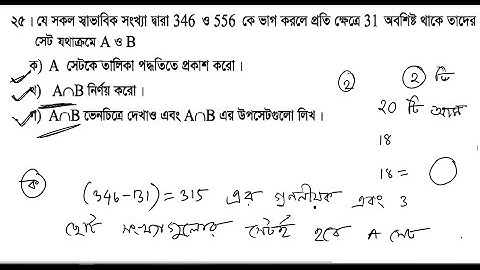 ২৫। যে সকল স্বাভাবিক সংখ্যা দ্বারা 346 ও 556 কে ভাগ করলে প্রতি ক্ষেত্রে 31 অবশিষ্ট থাকে তাদের
সেট যথাক্রমে A ও B
ক) A সেটকে তালিকা পদ্ধতিতে প্রকাশ করো।
খ) A∩B নির্ণয় করো।
গ) A∩B ভেনচিত্রে দেখাও এবং A∩B এর উপসেটগুলো লিখ।
2
2 টি
20 টি আম
18
18 =
ক
(346-31) = 315 এর গুণনীয়ক এবং 3
ছোট সংখ্যাগুলোর সেটই হবে A সেট